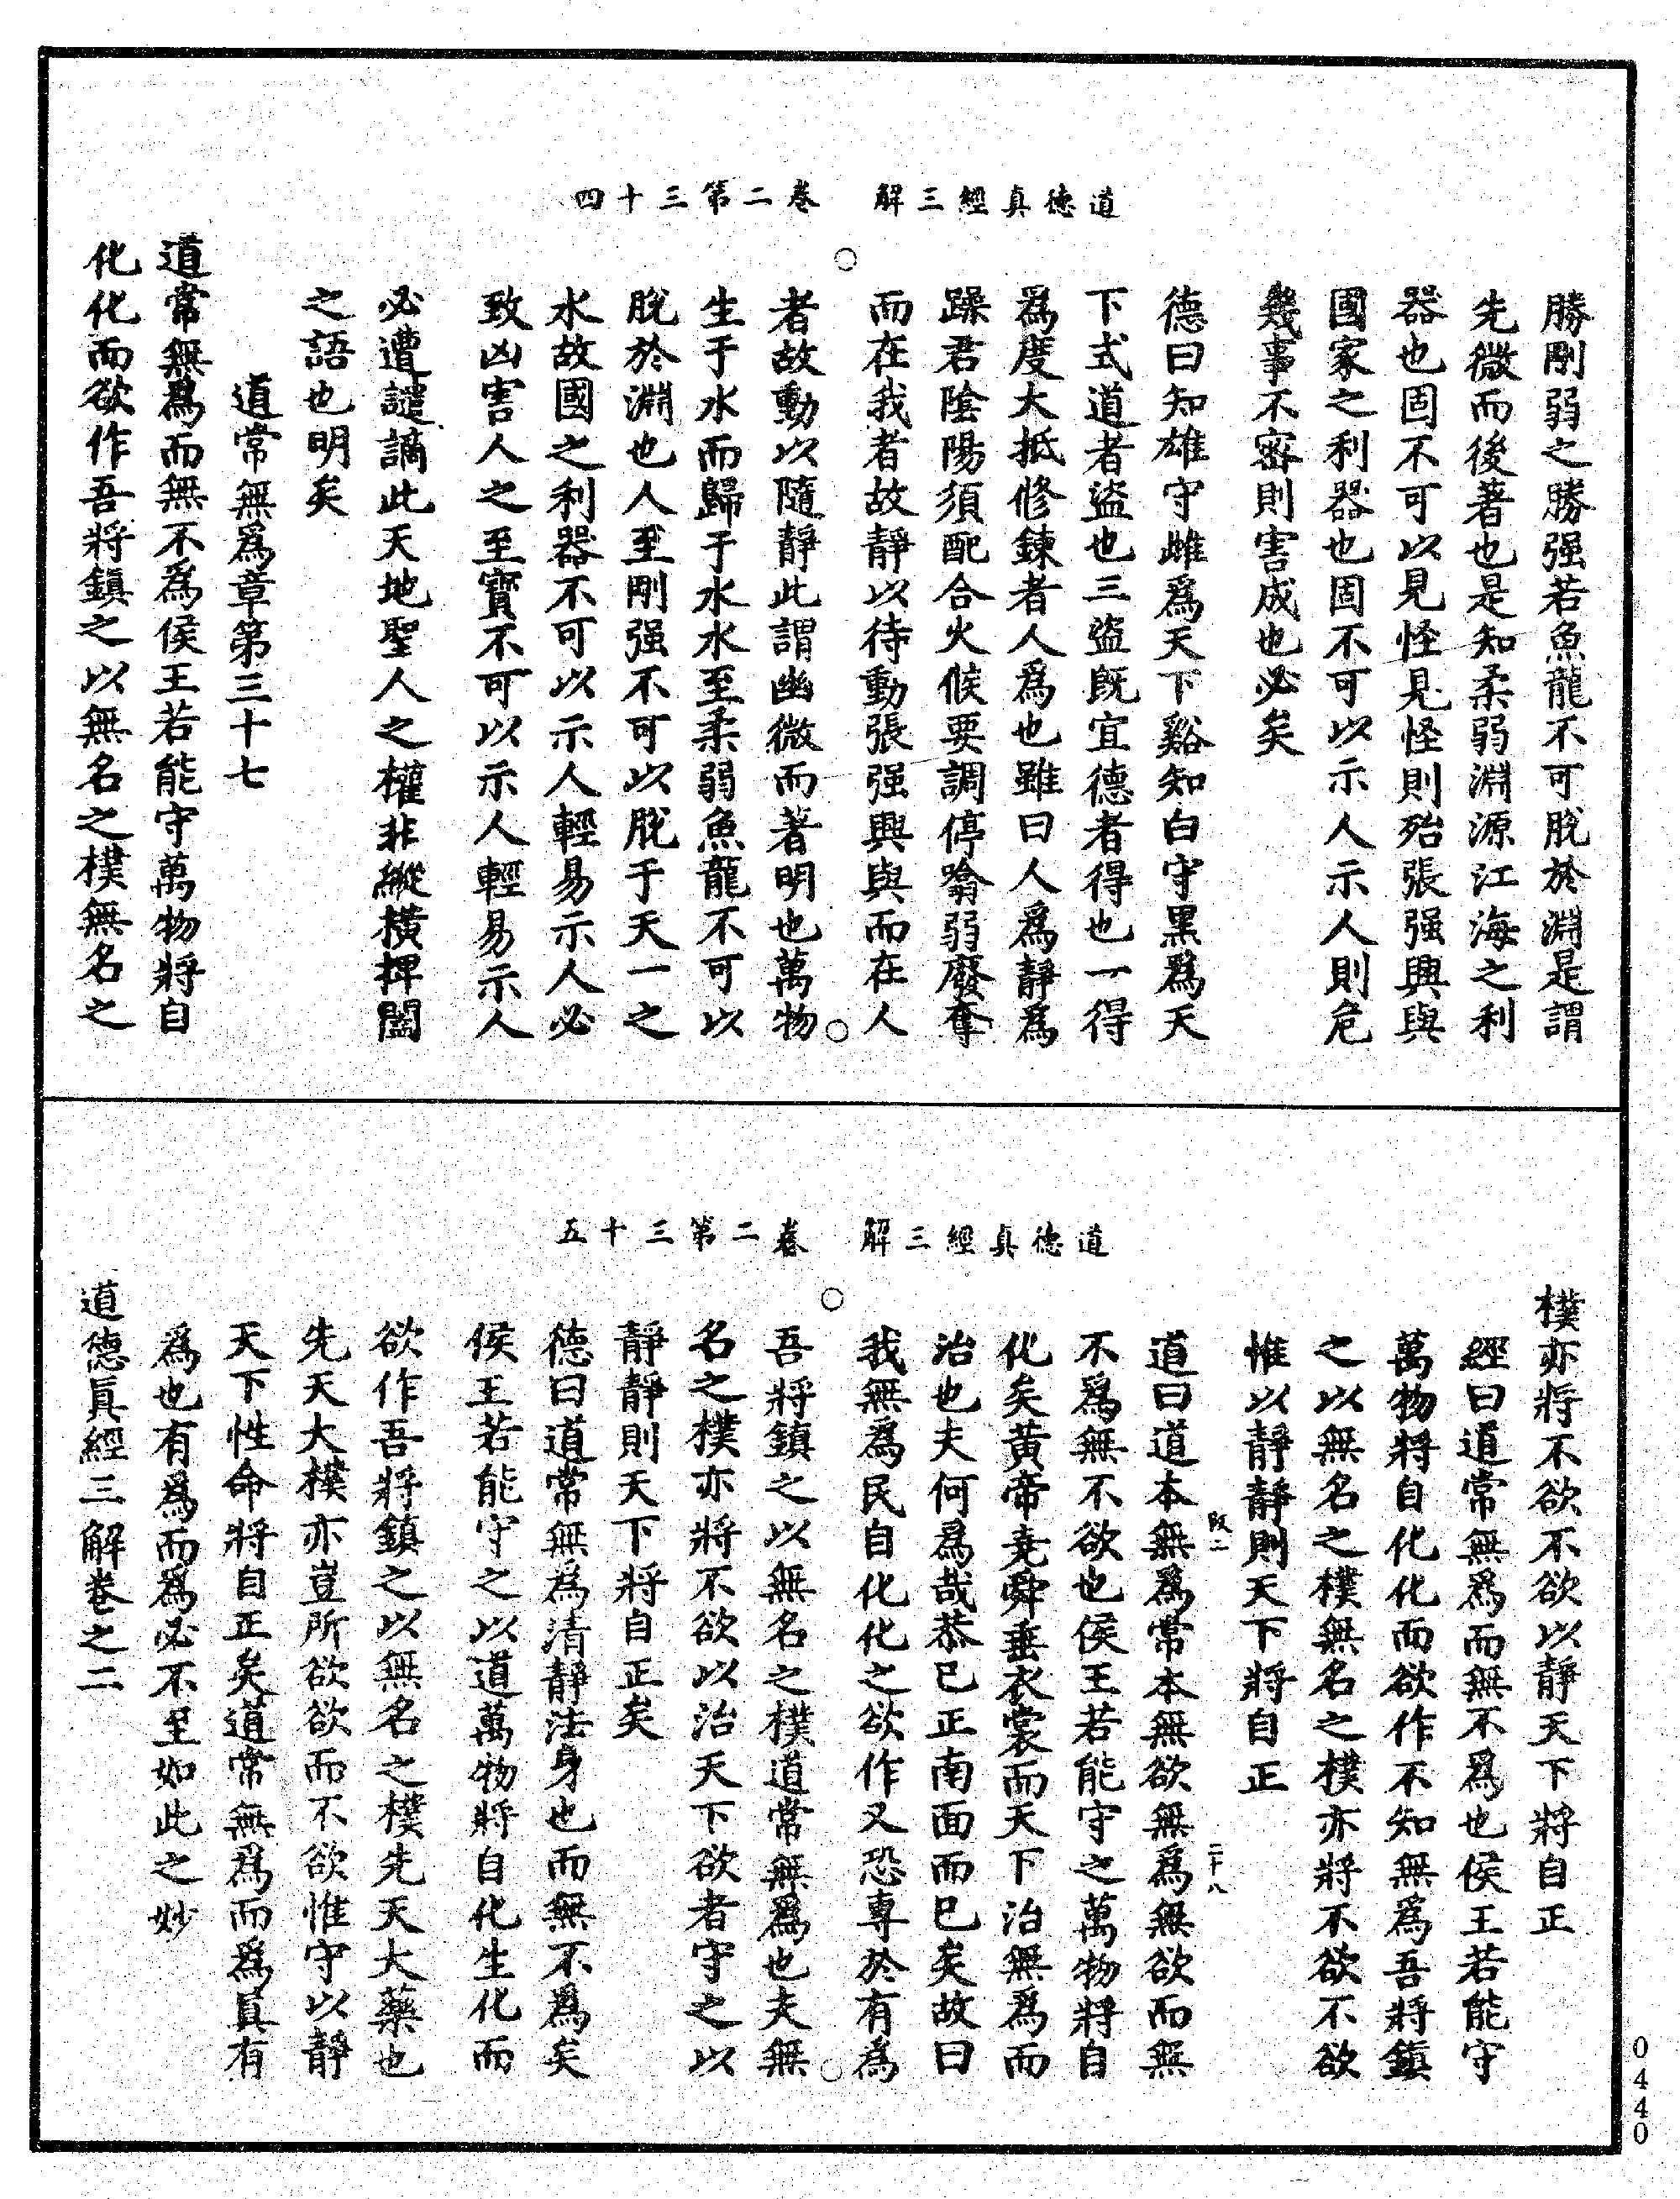 道德真經三解　卷二第三十四
勝剛弱之勝强若魚龍不可脫於淵是謂
先微而後著也是知柔弱淵源江海之利
器也固不可以見怪見怪則殆張强興與
國家之利器也固不可以示人示人則危
幾事不密則害成也必矣
德曰知雄守雌爲天下谿知白守黑爲天
下式道者盜也三盜既宜德者得也一得
爲度大抵修鍊者人爲也雖曰人爲靜爲
躁君陰陽須配合火候要調停噏弱廢奪
而在我者故靜以待動張强興與而在人
者故動以隨靜此謂幽微而著明也萬物
生于水而歸于水水至柔弱魚龍不可以
脫於淵也人至剛强不可以脫于天一之
水故國之利器不可以示人輕易示人必
致凶害人之至寳不可以示人輕易示人
必遭譴謫此天地聖人之權非縱橫捭闔
之語也明矣
道常無爲章第三十七
道常無爲而無不爲侯王若能守萬物將自
化化而欲作吾將鎮之以無名之樸無名之
道德真經三解　卷二第三十五
樸亦將不欲不欲以靜天下將自正
經曰道常無爲而無不爲也侯王若能守
萬物將自化化而欲作不知無爲吾將鎮
之以無名之樸無名之樸亦將不欲不欲
惟以靜靜則天下將自正
改二　二十八
道曰道本無爲常本無欲無爲無欲而無
不爲無不欲也侯王若能守之萬物將自
化矣黃帝堯舜垂衣裳而天下治無爲而
治也夫何爲哉恭已正南面而已矣故曰
我無爲民自化化之欲作又恐專於有爲
吾將鎮之以無名之樸道常無爲也夫無
名之樸亦將不欲以治天下欲者守之以
靜靜則天下將自正矣
德曰道常無爲清靜法身也而無不爲矣
侯王若能守之以道萬物將自化生化而
欲作吾將鎮之以無名之樸先天大藥也
先天大樸亦豈所欲欲而不欲惟守以靜
天下性命將自正矣道常無爲而爲眞有
爲也有爲而爲必不至如此之妙
道德眞經三解卷之二
0440